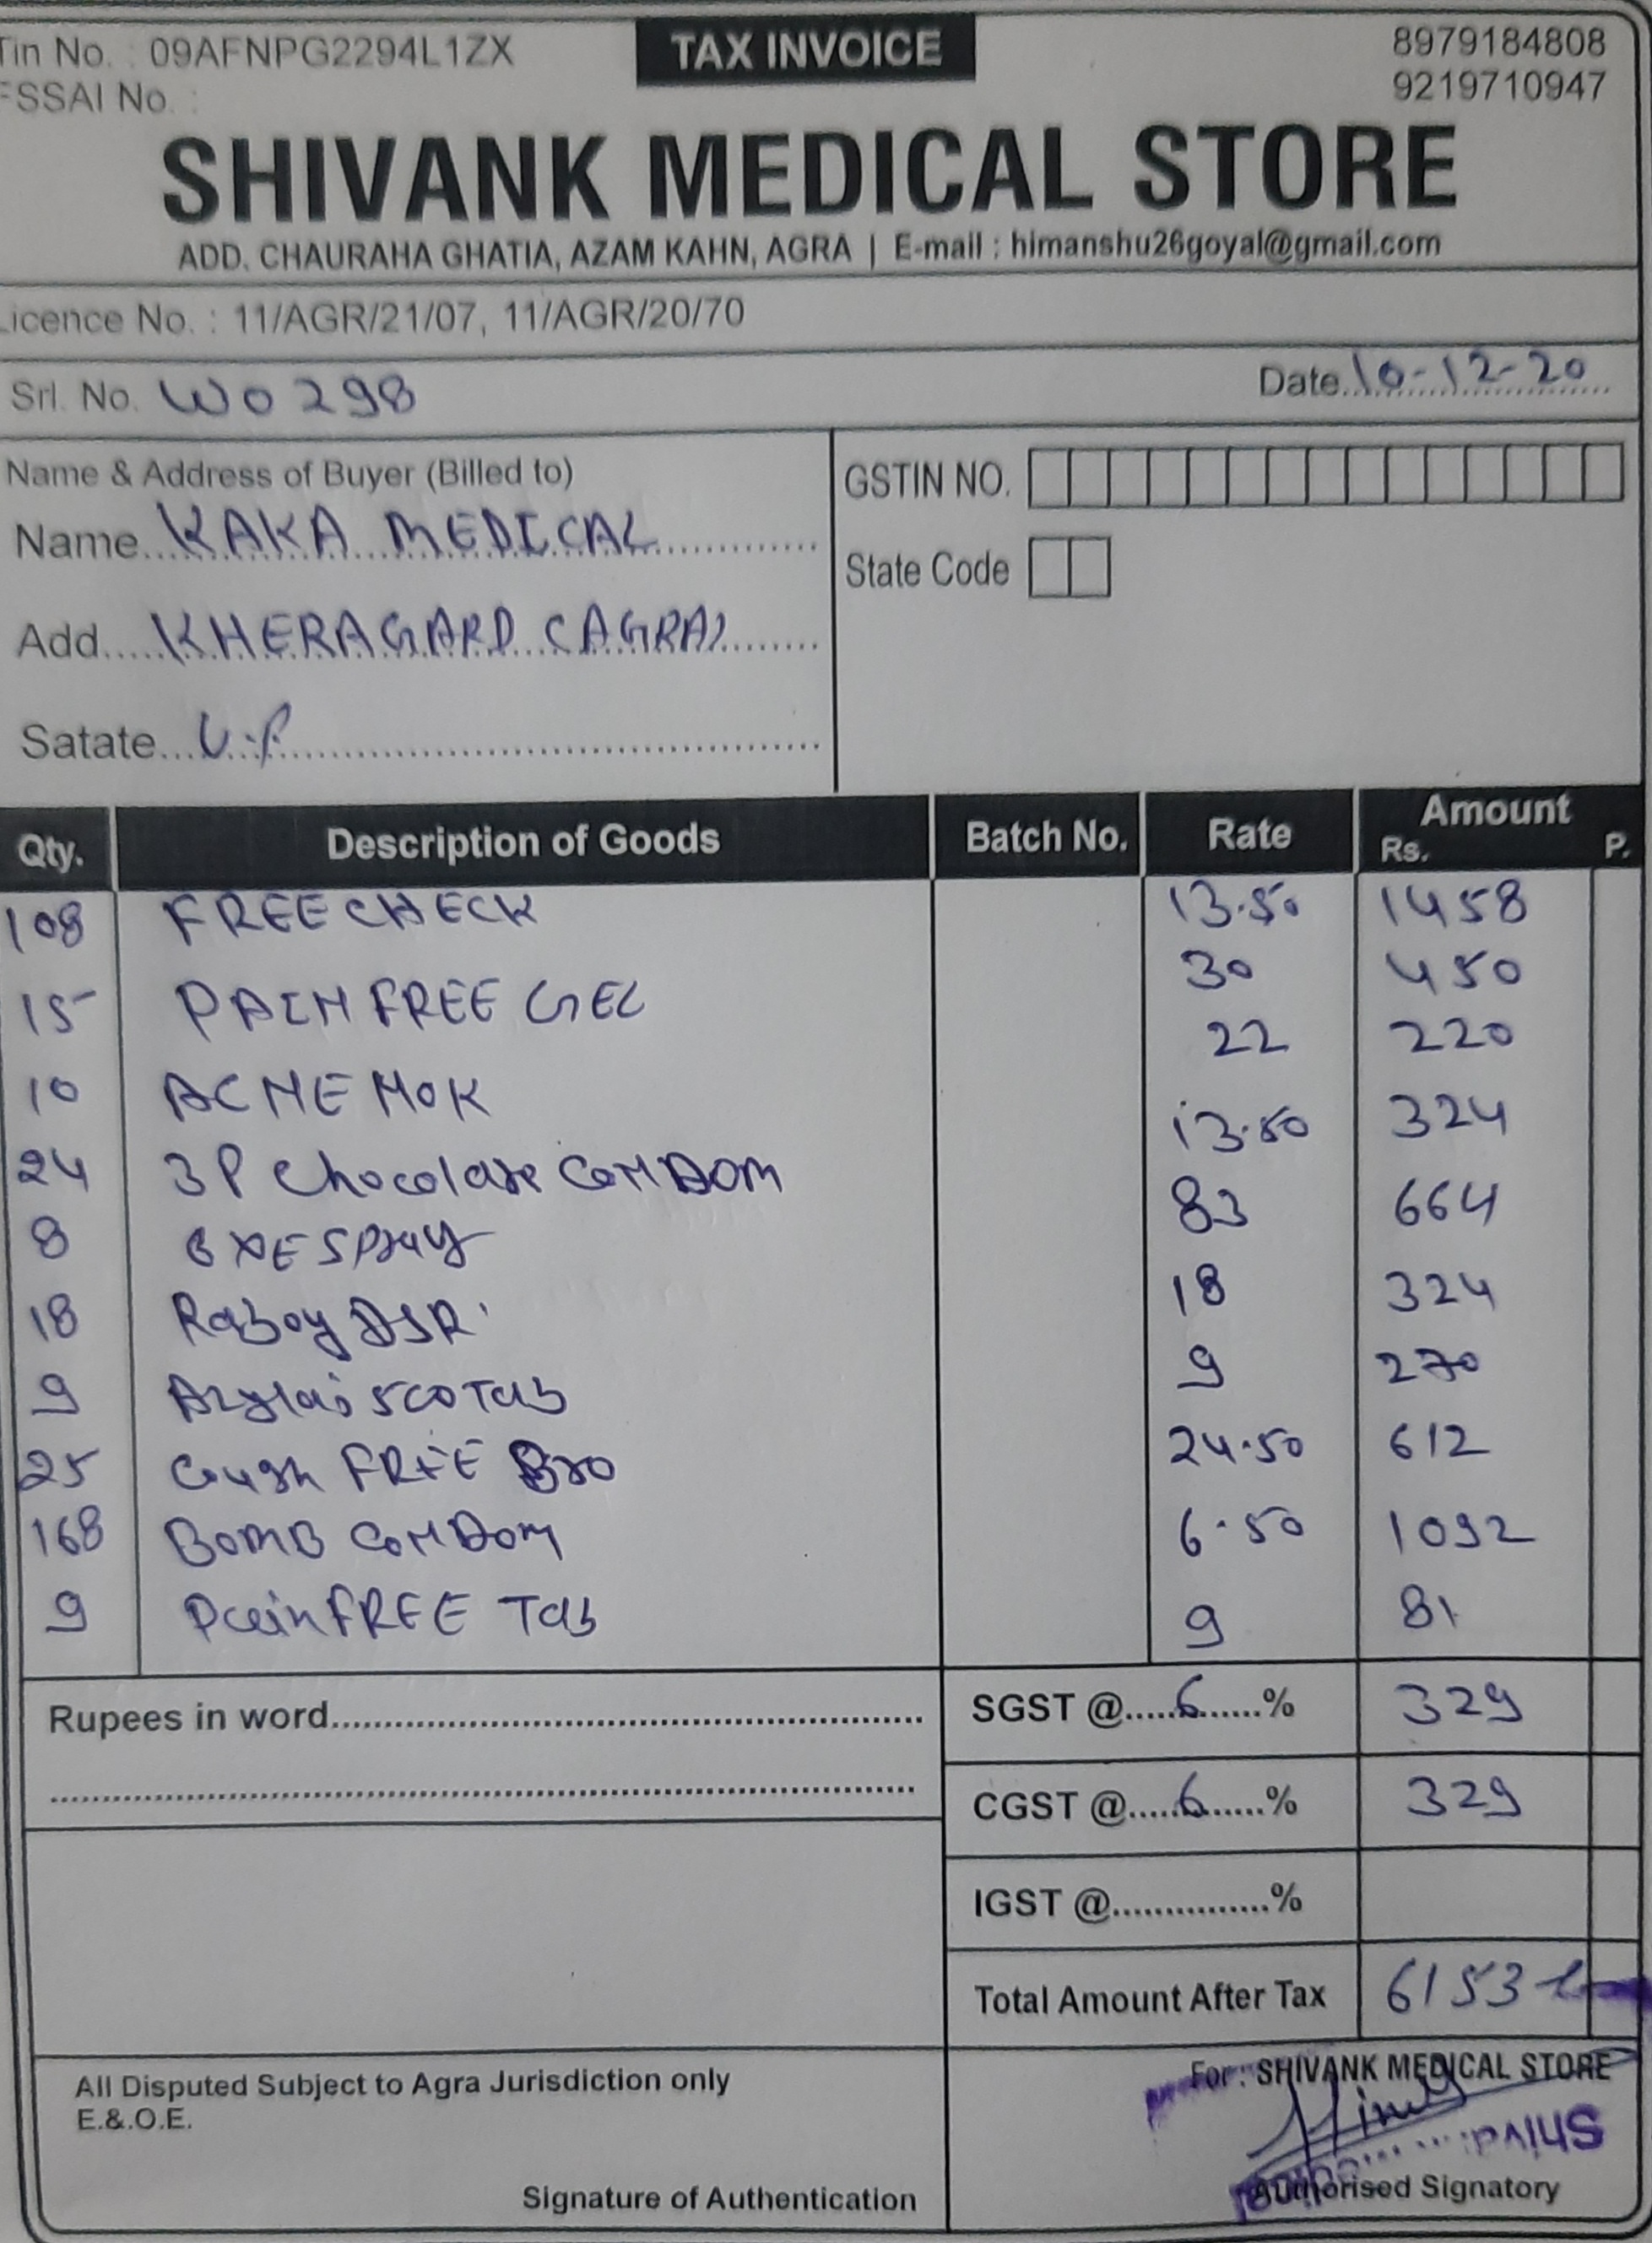 Tin No. : 09AFNPG2294L1ZX TAX INVOICE 8979184808
FSSAI No. : 9219710947
SHIVANK MEDICAL STORE
ADD. CHAURAHA GHATIA, AZAM KAHN, AGRA | E-mail : himanshu26goyal@gmail.com
Licence No. : 11/AGR/21/07, 11/AGR/20/70
Srl. No. W0298 Date 10-12-20
Name & Address of Buyer (Billed to) GSTIN NO.
Name KAKA MEDICAL
State Code
Add KHERAGARD (AGRA)
Satate U.P
Qty. Description of Goods Batch No. Rate Amount Rs. P.
108 FREECHECK 13.50 1458
15 PAIN FREE GEL 30 450
10 ACNE NOK 22 220
24 3P Chocolate CONDOM 13.50 324
8 SPray 83 664
18 DSR 18 324
9 500 Tab 9 270
25 FREE Bro 24.50 612
168 BOMB CONDOM 6.50 1092
9 Pain FREE Tab 9 81
Rupees in word SGST @ 6 % 329
CGST @ 6 % 329
IGST @ %
Total Amount After Tax 6153
All Disputed Subject to Agra Jurisdiction only For : SHIVANK MEDICAL STORE
E.&.O.E.
Signature of Authentication Authorised Signatory